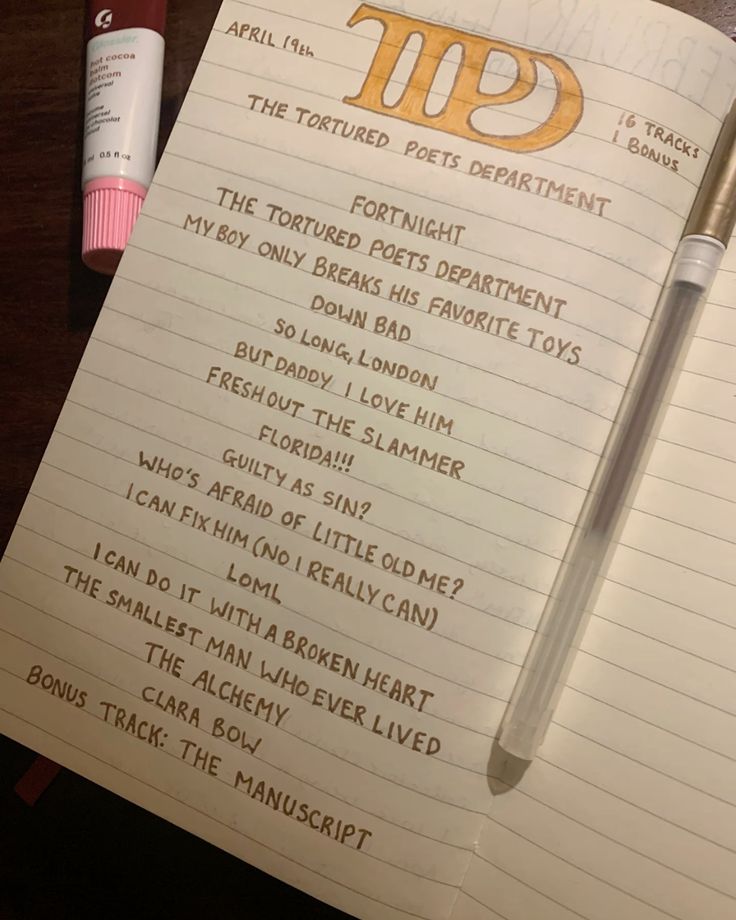 Glossier.
hot cocoa
balm
dotcom
0.5 fl oz
APRIL 19th
TTPD
16 TRACKS
1 BONUS
THE TORTURED POETS DEPARTMENT
FORTNIGHT
THE TORTURED POETS DEPARTMENT
MY BOY ONLY BREAKS HIS FAVORITE TOYS
DOWN BAD
SO LONG, LONDON
BUT DADDY I LOVE HIM
FRESH OUT THE SLAMMER
FLORIDA!!!
GUILTY AS SIN?
WHO'S AFRAID OF LITTLE OLD ME?
I CAN FIX HIM (NO I REALLY CAN)
LOML
I CAN DO IT WITH A BROKEN HEART
THE SMALLEST MAN WHO EVER LIVED
THE ALCHEMY
CLARA BOW
BONUS TRACK: THE MANUSCRIPT